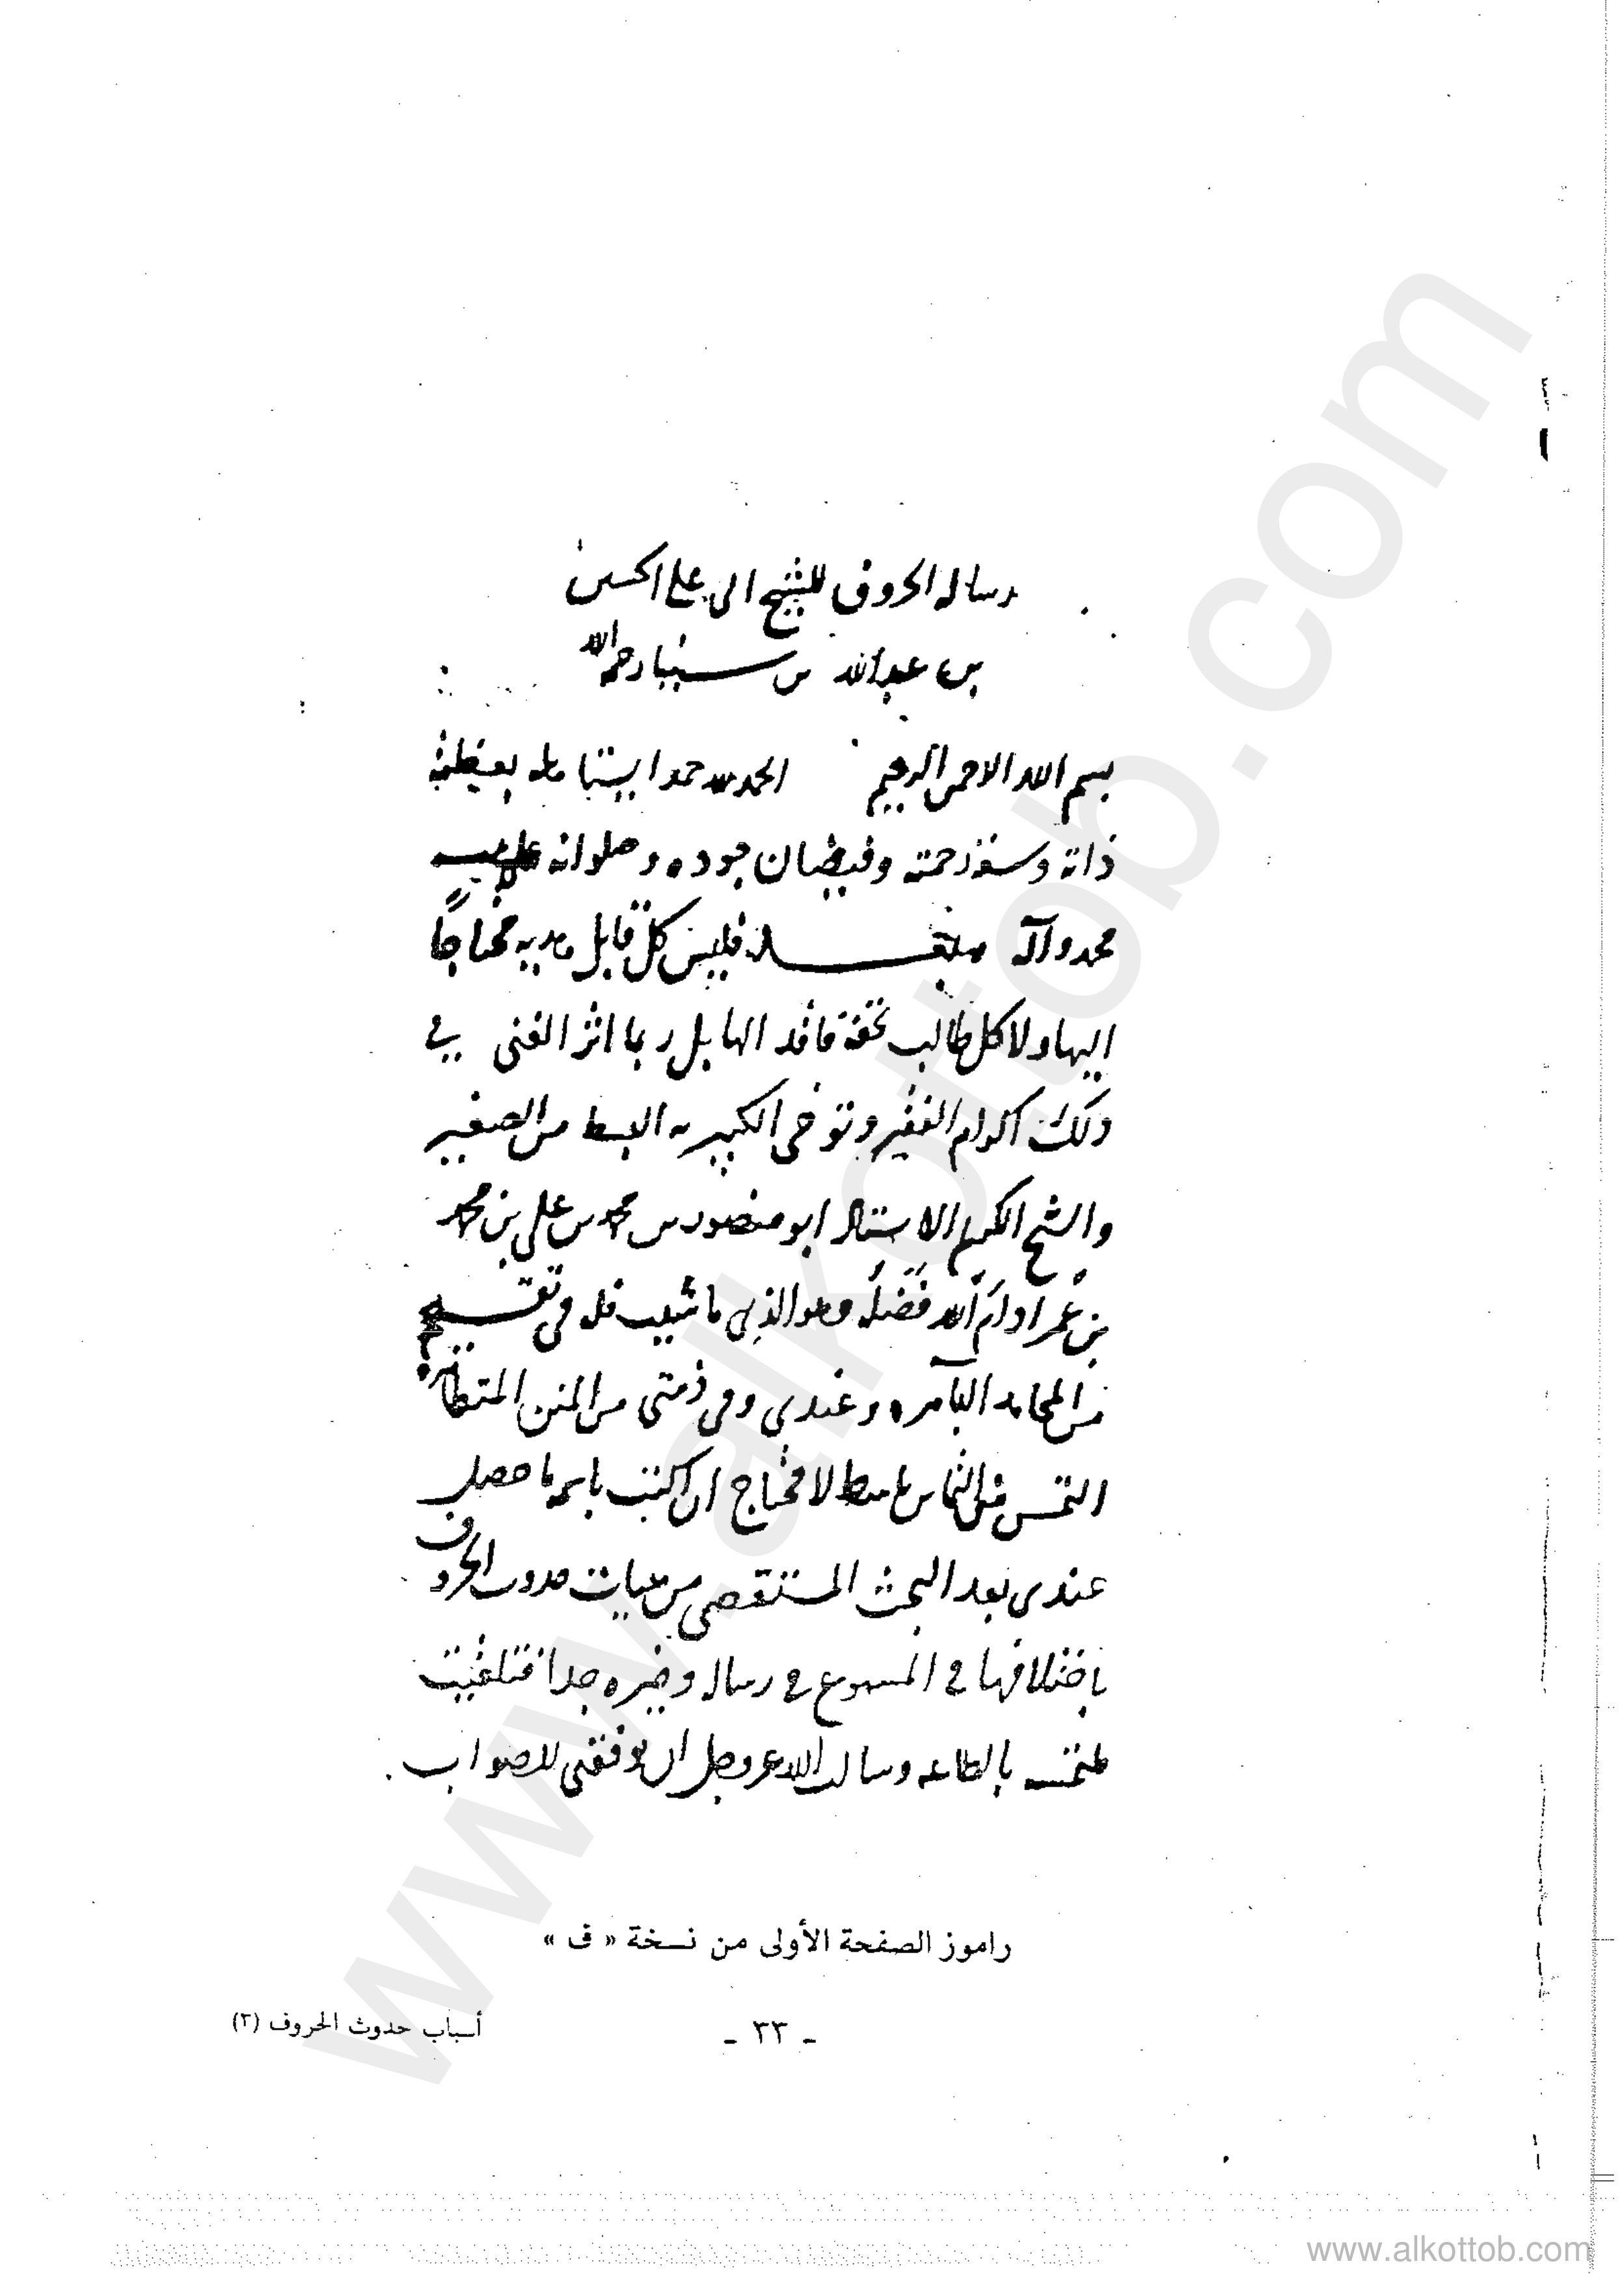 رساله الحروف للشيخ ابى على الحسين
بن عبدالله بن سينا رحمه الله
بسم الله الرحمن الرحيم الحمد لله حمدا يستاهله بعظمة
ذاته وسعة رحمته وفيضان جوده وصلواته على
محمد وآله فليس كل قابل هديه محتاجا
اليها ولا كل طالب تحفة فاقد لها بل ربما اثر الغنى في
ذلك اكرام الفقير وتوخى الكبير به البسط من الصغير
والشيخ الكريم الاستاذ ابو منصور بن محمد بن على بن محمد
بن عمر ادام الله فضله وهو الذى فى
من المحامد وعندى وفى ذمتى من المنن المتظاهره
التمس منى التماس باسط لا محتاج ان اكتب باسمه ما حصل
عندى بعد البحث المستقصى من حدوث الحروف
باختلافها في المسموع في رساله وجيزه جدا فتلقيت
ملتمسه بالطاعه وسالت الله عز وجل ان يوفقنى للصواب
راموز الصفحة الأولى من نسخة « ف »
- ٣٣ -
أسباب حدوث الحروف (٣)
www.alkottob.com
www.alkottob.com